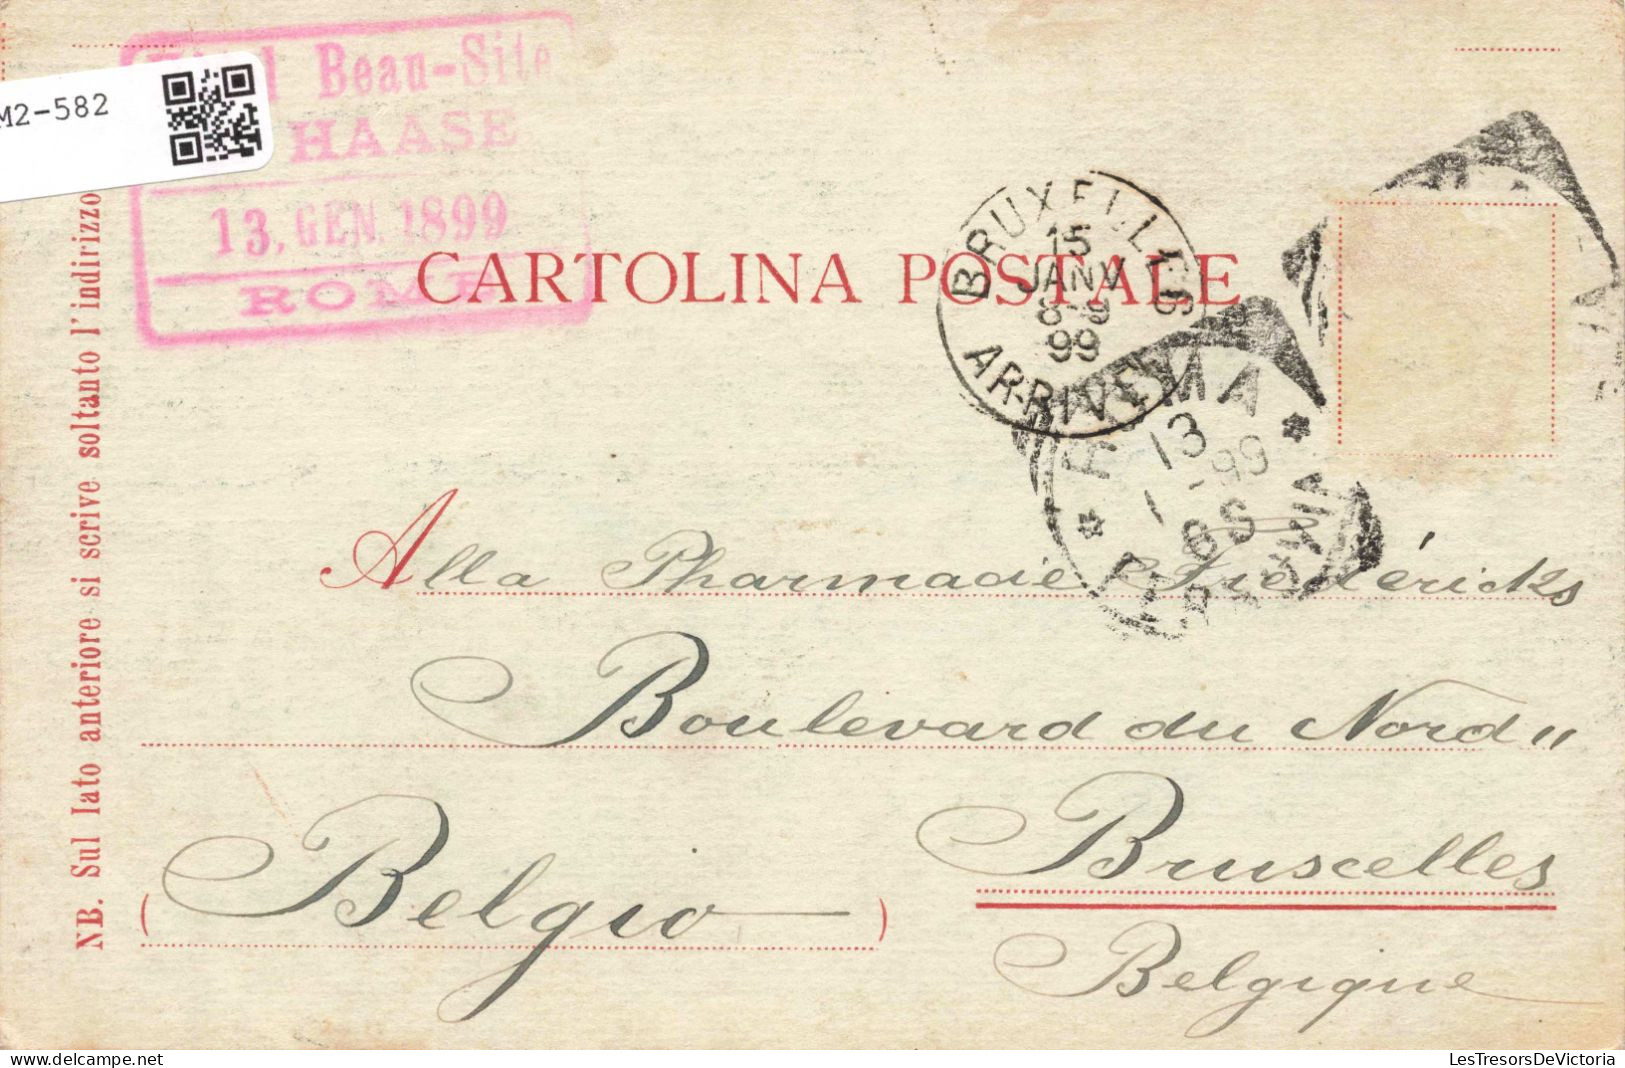 M2-582
Beau-Site
HAASE
13. GEN. 1899
ROME
CARTOLINA POSTALE
BRUXELLES
15
JANV
8-9
99
ARRIVEE
ROMA
13
1 - 99
8S
FERROVIA
NB. Sul lato anteriore si scrive soltanto l'indirizzo
Alla Pharmacie Frédéricks
Boulevard du Nord "
Bruxelles
(Belgio)
Belgique
LesTresorsDeVictoria